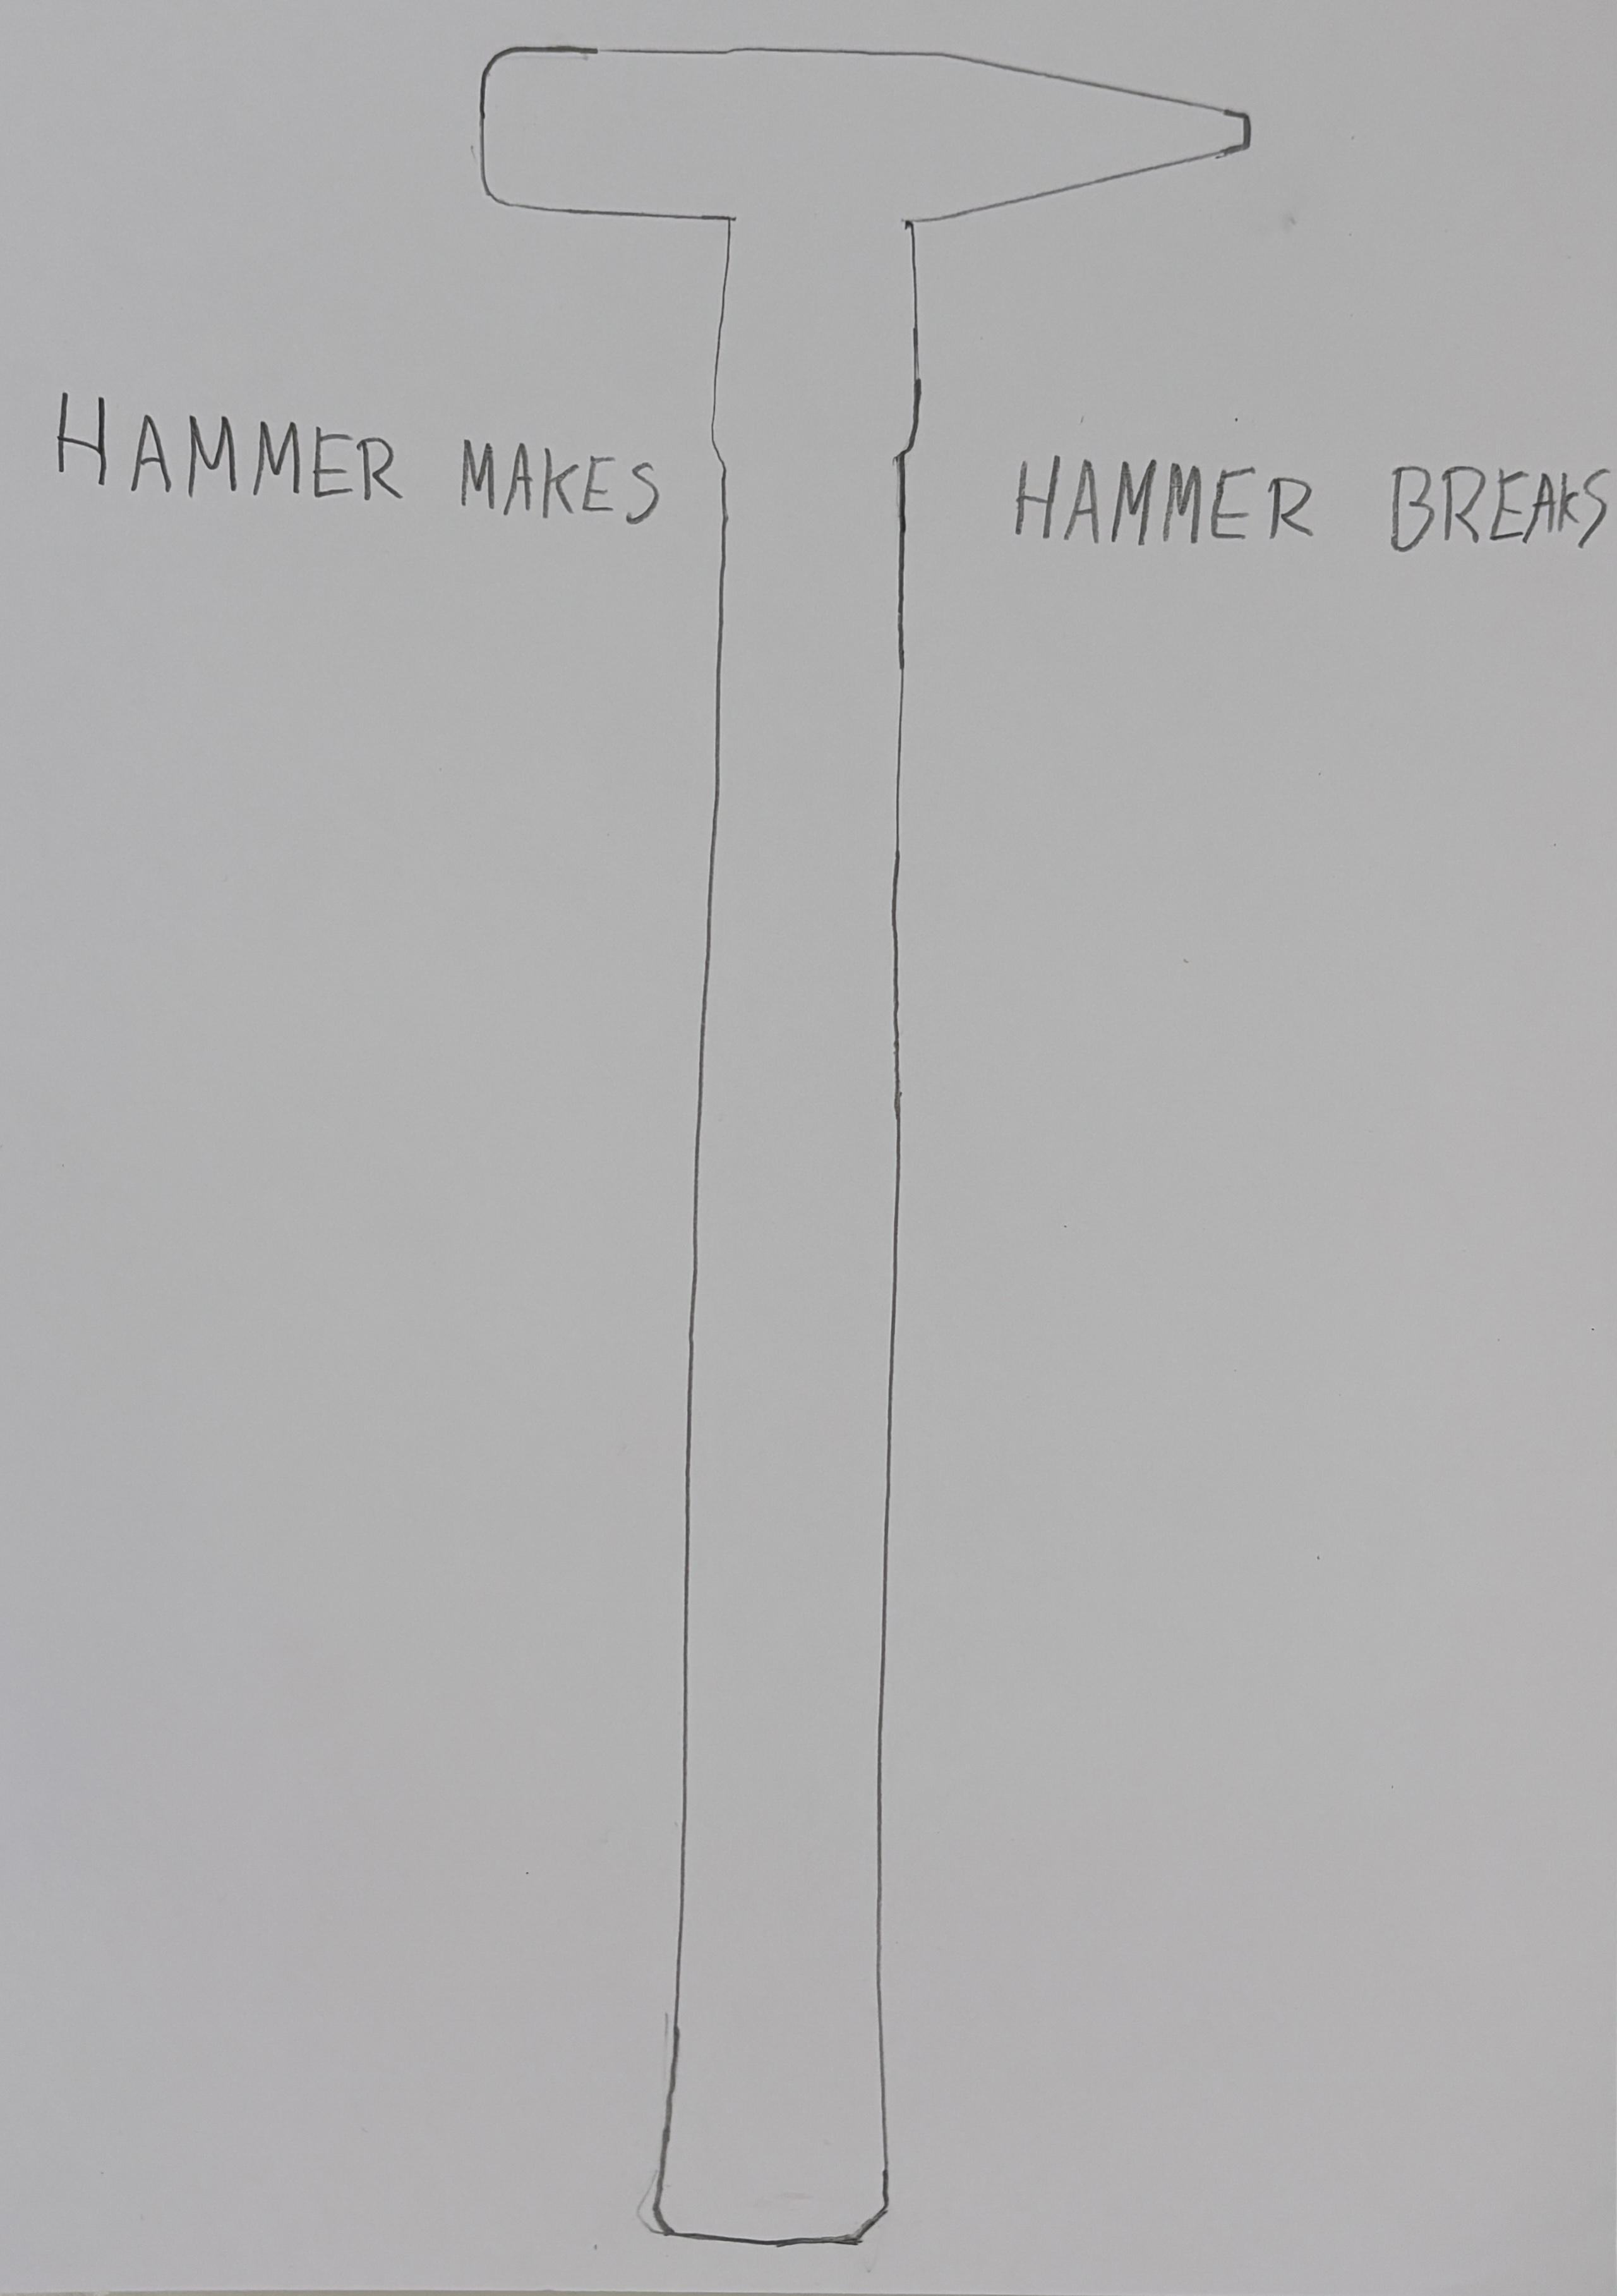 HAMMER MAKES
HAMMER BREAKS